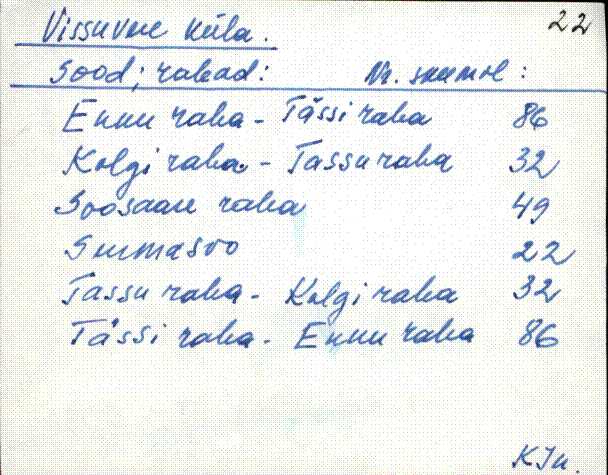 Vissuvere küla. 22
Sood; rabad: Nr. skeemil:
Ennu raba - Tässi raba 86
Kolgi raba - Tassu raba 32
Soosaare raba 49
Surmasoo 22
Tassu raba - Kolgi raba 32
Tässi raba - Ennu raba 86